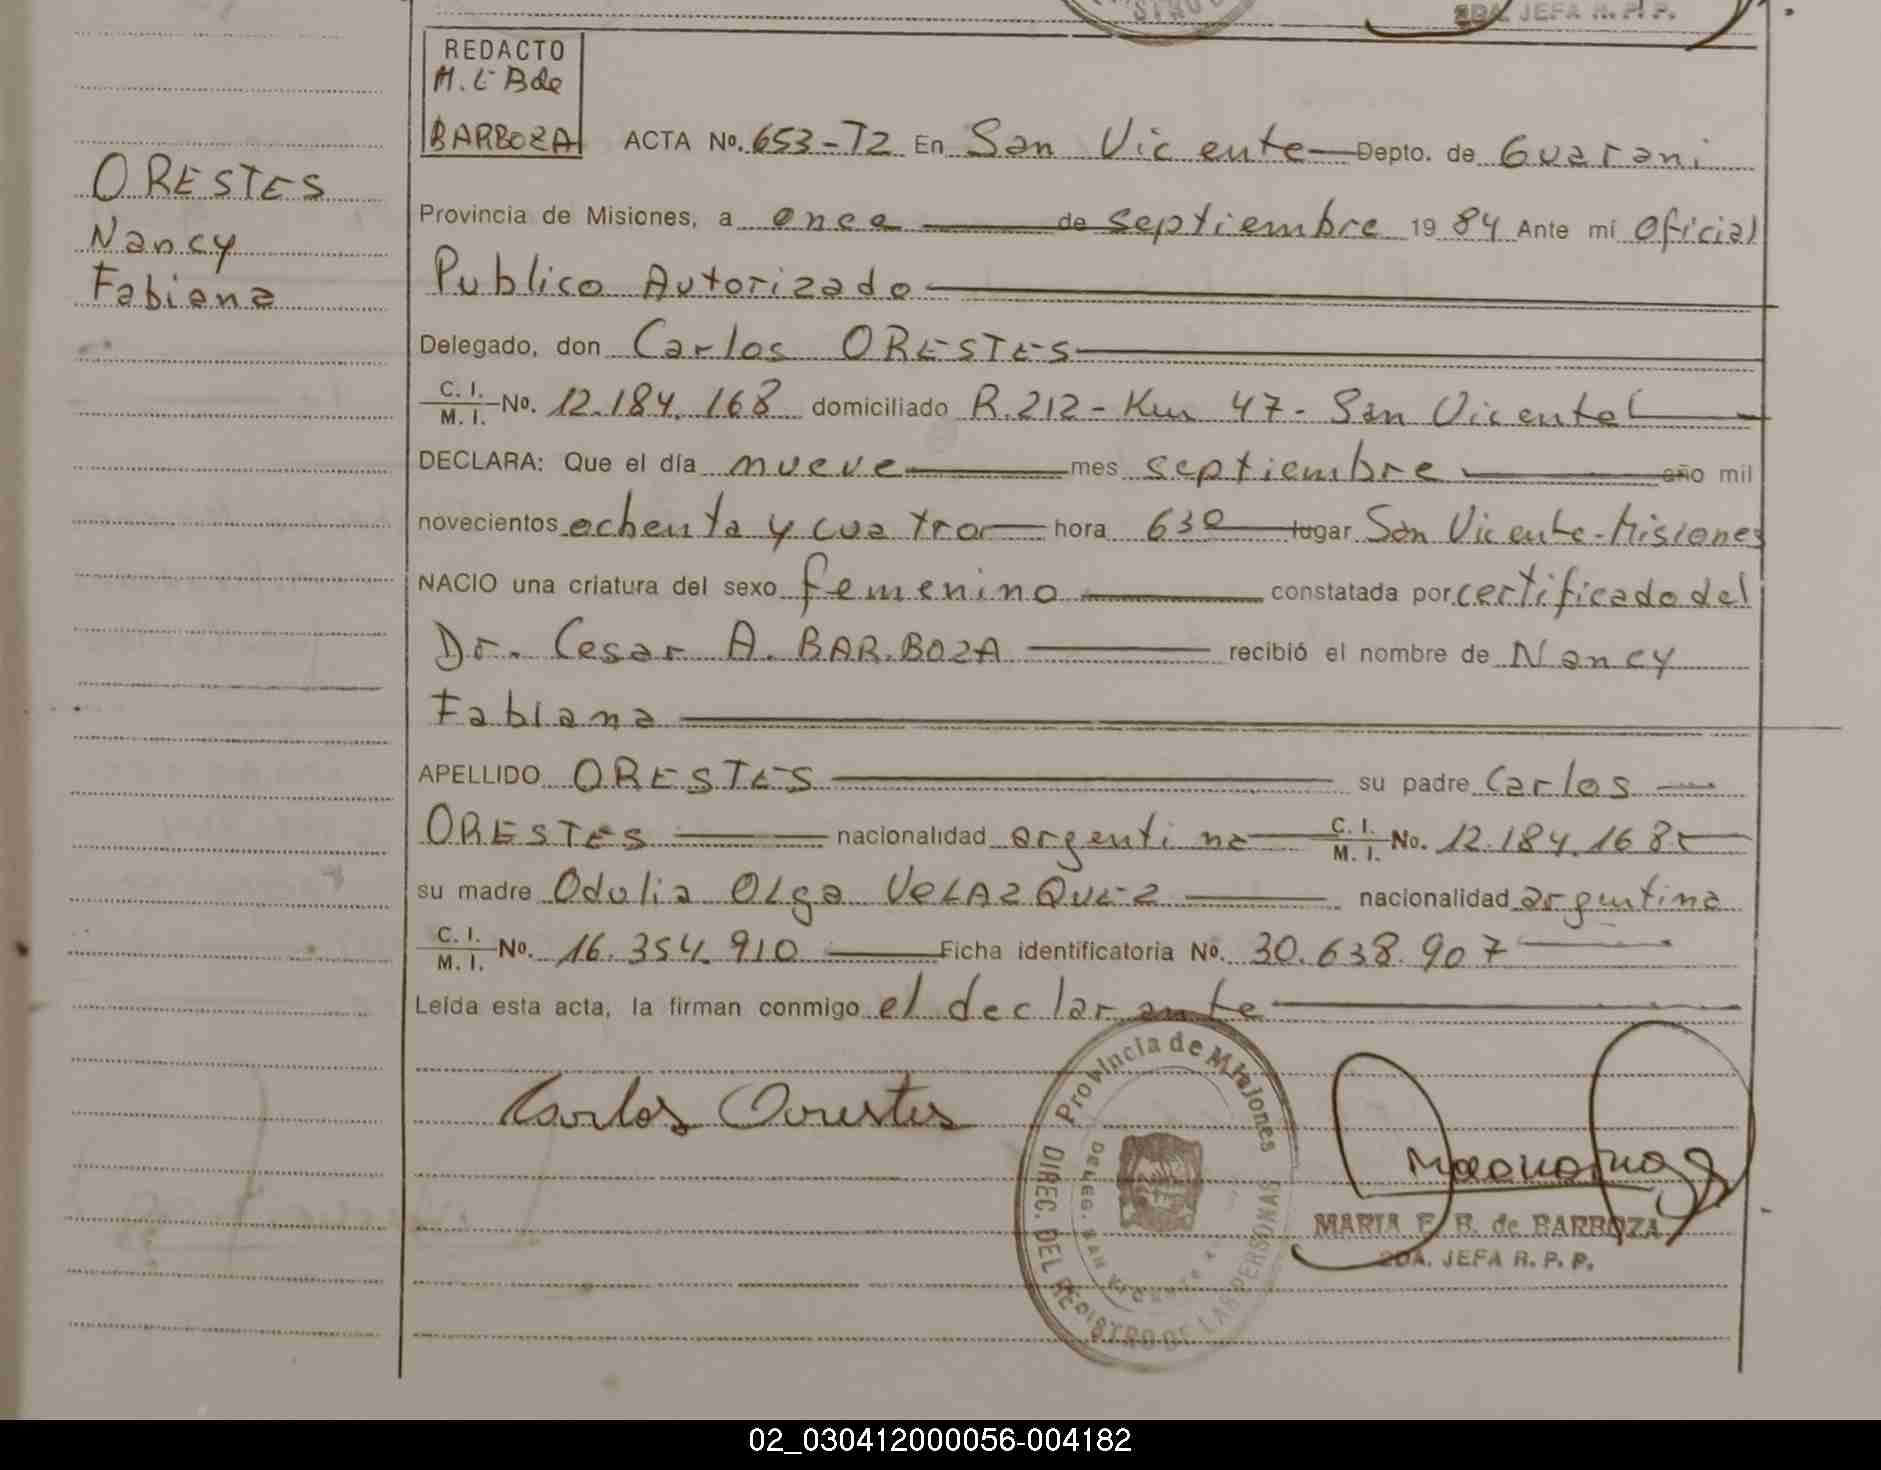 2DA. JEFA R. P. P.
REDACTO
M. E B de
BARBOZA
ACTA Nº. 653-T2 En San Vicente Depto. de Guarani
ORESTES
Nancy
Fabiana
Provincia de Misiones, a once de septiembre 19 84 Ante mí Oficial
Publico Autorizado
Delegado, don Carlos ORESTES
C. I. M. I. No. 12.184.168 domiciliado R.212 - Km 47 - San Vicente
DECLARA: Que el día nueve mes septiembre año mil
novecientos ochenta y cuatro hora 630 lugar San Vicente - Misiones
NACIO una criatura del sexo femenino constatada por certificado del
Dr. Cesar A. BARBOZA recibió el nombre de Nancy
Fabiana
APELLIDO ORESTES su padre Carlos
ORESTES nacionalidad argentina C. I. M. I. No. 12.184.168
su madre Odulia Olga VELAZQUEZ nacionalidad argentina
C. I. M. I. No. 16.354.910 Ficha identificatoria Nº. 30.638.907
Leída esta acta, la firman conmigo el declarante
Carlos Orestes
Provincia de Misiones
DIREC. DEL REGISTRO DE LAS PERSONAS
DELEG. SAN VICENTE
MARIA E. B. de BARBOZA
2DA. JEFA R. P. P.
02_030412000056-004182